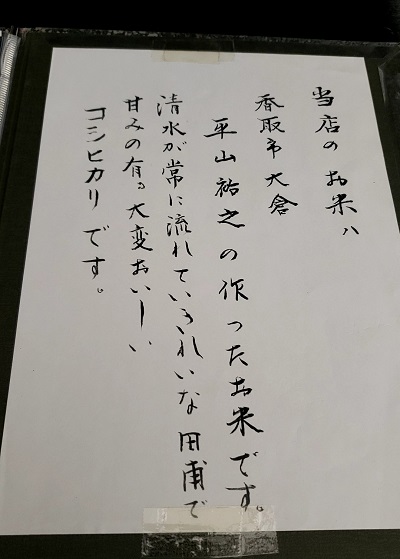 当店のお米ハ
香取市大倉
平山祐之の作ったお米です。
清水が常に流れているきれいな田甫で
甘みの有る大変おいしい
コシヒカリです。